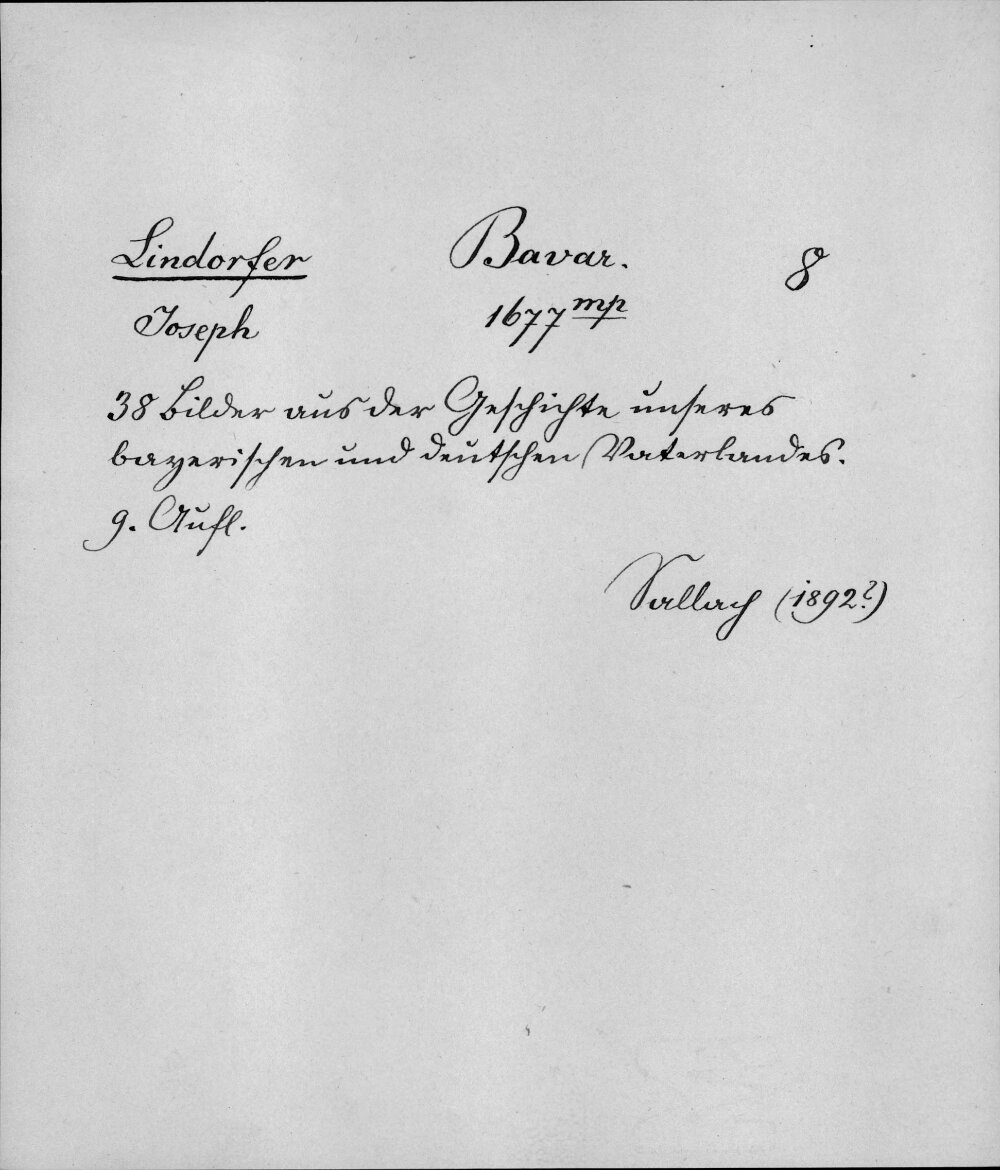 Lindorfer Bavar. 8
Joseph 1677 mp
38 Bilder aus der Geschichte unseres
bayerischen und deutschen Vaterlandes.
9. Aufl.
Sallach (1892?)